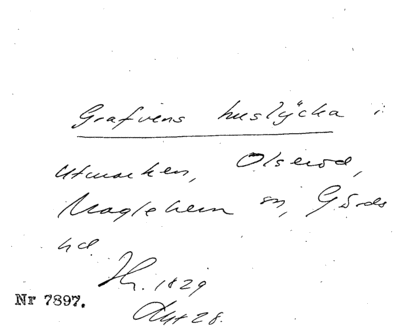 Grafvens huslÿcka i
utmarken, Olserod,
Maglehem sn, Gärds
hd.
Hr. 1829
Akt 28.
Nr 7897.